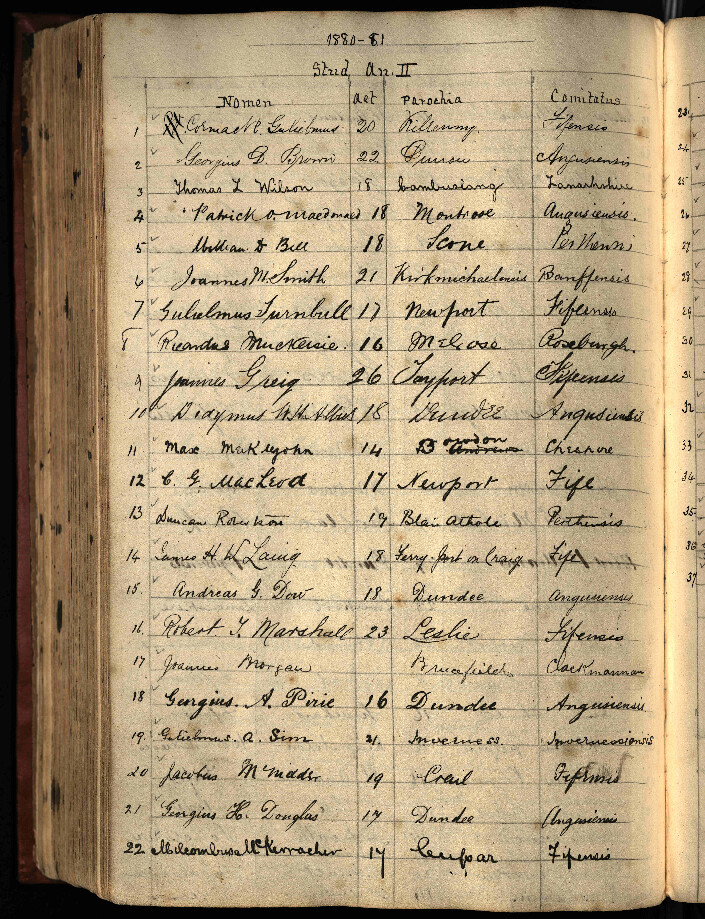 1880-81
Stud. An. II
Nomen Aet Parochia Comitatus
1 Cormack Gulielmus 20 Kilrenny. Fifensis
2 Georgius D. Brown 22 Angusiensis
3 Thomas L Wilson 18 Cambuslang Lanarkshire
4 Patrick O. Macdonald 18 Montrose Angusiensis.
5 William D Bell 18 Scone
6 Joannes M. Smith 21 Kirkmichaelensis Banffensis
7 Gulielmus Turnbull 17 Newport Fifensis
8 Ricardus Muckersie. 16 Melrose Roxburgh.
9 Joannes Greig 26 Tayport Fifensis
10 Didymus 18 Dundee Angusiensis
11 Max Meiklejohn 14 Bowdon Cheshire
12 C. G. MacLeod 17 Newport Fife
13 Duncan Robertson 19 Blair Athole Perthensis
14 James H. W. Laing 18 Ferry-Port on Craig Fife
15. Andreas G. Dow 18 Dundee Angusiensis
16. Robert T. Marshall 23 Leslie Fifensis
17 Joannes Morgan Brucefield Clackmannan
18 Georgius. A. Pirie 16 Dundee Angusiensis
19. Gulielmus. A. Sim 21. Inverness. Invernessiensis
20 Jacobus 19 Crail Fifensis
21 Georgius H. Douglas 17 Dundee Angusiensis
22 McKerracher 17 Cupar Fifensis
24
25
26
27
28
29
30
31
32
33
34
35.
36
37